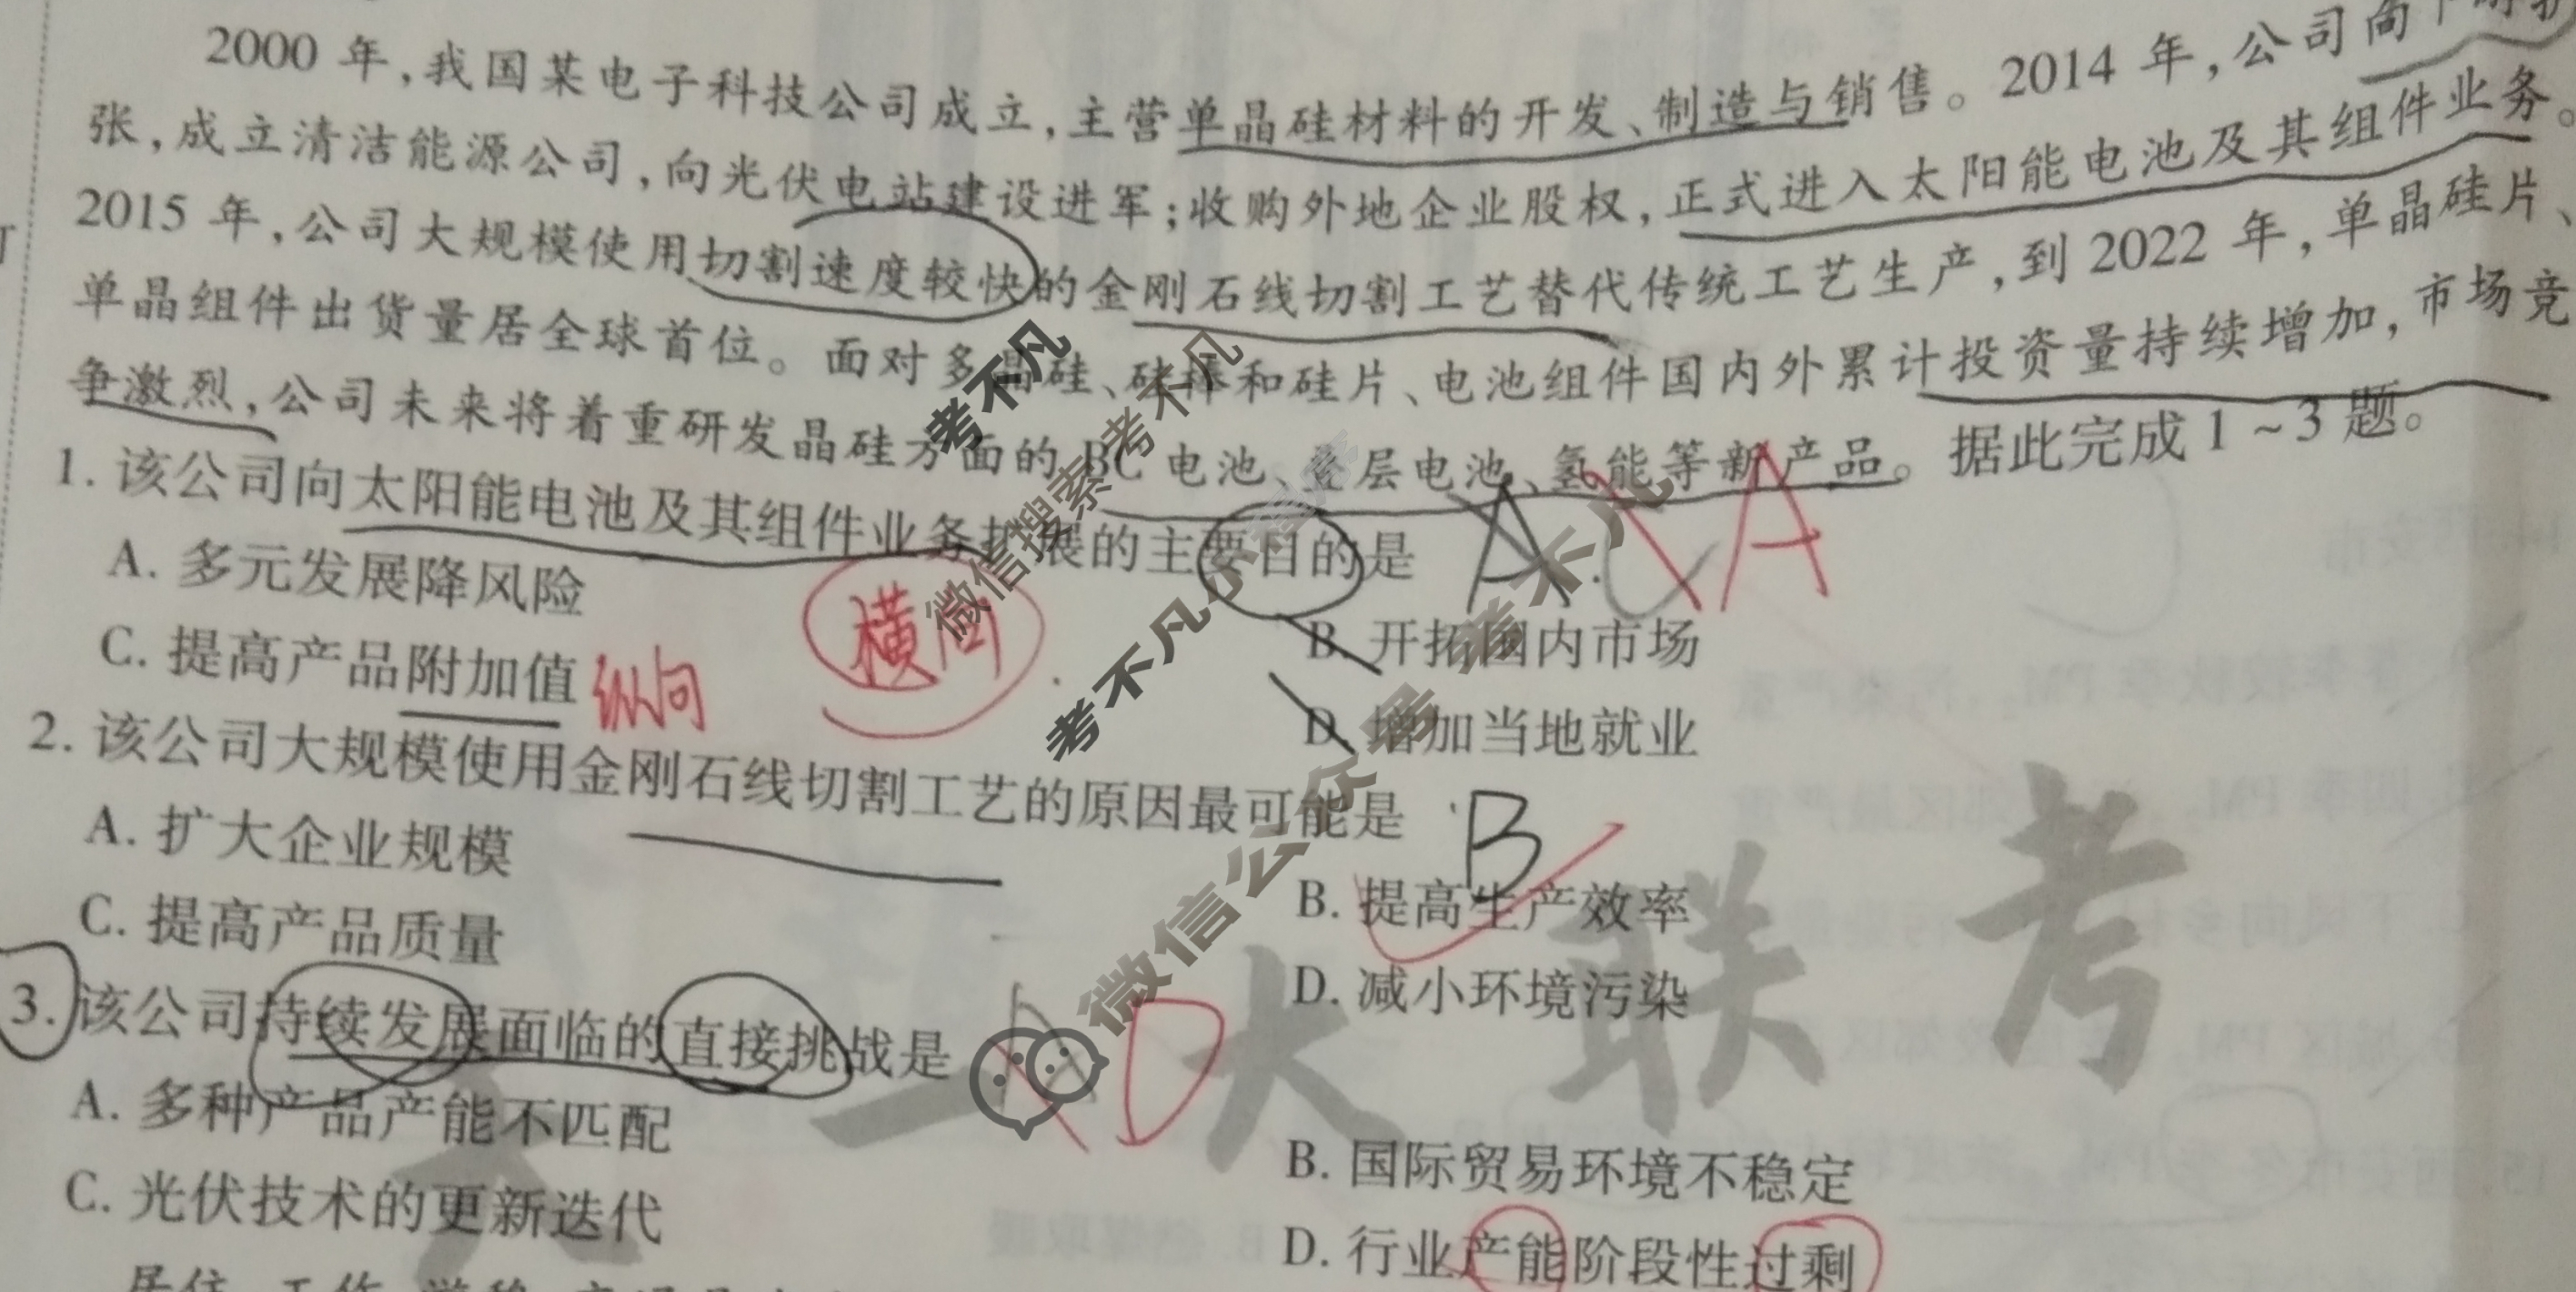 2000 年,我国某电子科技公司成立,主营单晶硅材料的开发、制造与销售。2014 年,公司向下游扩
张,成立清洁能源公司,向光伏电站建设进军;收购外地企业股权,正式进入太阳能电池及其组件业务。
2015 年,公司大规模使用切割速度较快的金刚石线切割工艺替代传统工艺生产,到 2022 年,单晶硅片、
单晶组件出货量居全球首位。面对多晶硅、硅棒和硅片、电池组件国内外累计投资量持续增加,市场竞
争激烈,公司未来将着重研发晶硅方面的 BC 电池、叠层电池、氢能等新产品。据此完成 1～3 题。
1. 该公司向太阳能电池及其组件业务扩展的主要目的是 A A
A. 多元发展降风险
B. 开拓国内市场
横向
C. 提高产品附加值 纵向
D. 增加当地就业
2. 该公司大规模使用金刚石线切割工艺的原因最可能是 B
A. 扩大企业规模
B. 提高生产效率
C. 提高产品质量
D. 减小环境污染
3. 该公司持续发展面临的直接挑战是 D
A. 多种产品产能不匹配
B. 国际贸易环境不稳定
C. 光伏技术的更新迭代
D. 行业产能阶段性过剩
考不凡
微信搜索 考不凡
考不凡小程序
微信公众号 考不凡
天一大联考